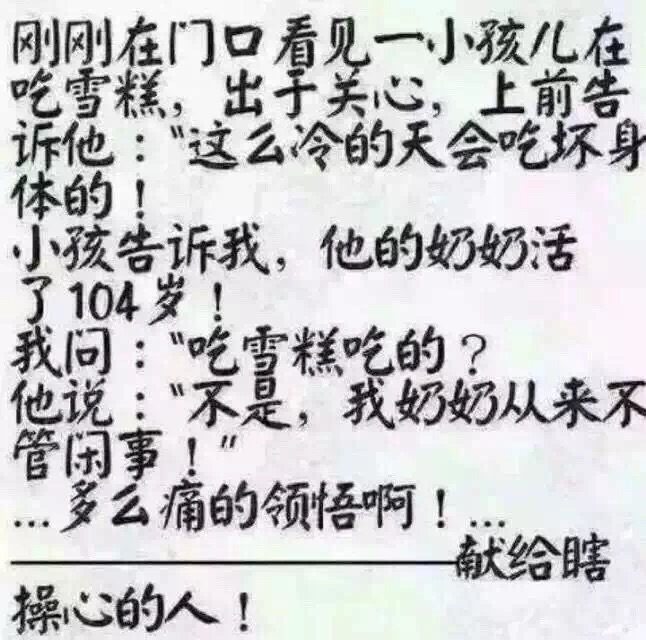 刚刚在门口看见一小孩儿在
吃雪糕，出于关心，上前告
诉他："这么冷的天会吃坏身
体的！
小孩告诉我，他的奶奶活
了104岁！
我问："吃雪糕吃的？
他说："不是，我奶奶从来不
管闲事！"
...多么痛的领悟啊！...
——————————献给瞎
操心的人！